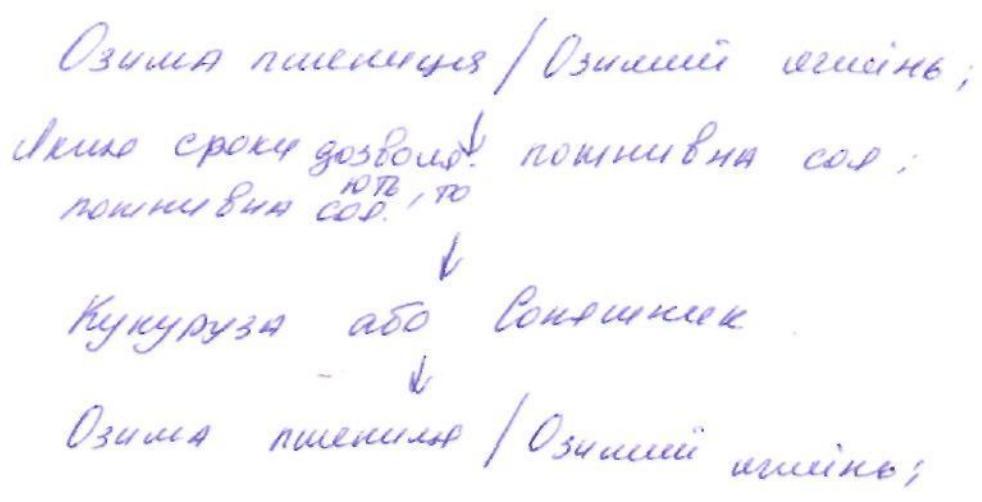 Озима пшениця / Озимий ячмінь;
↓
Якщо сроки дозволя- пожнивна соя;
ють, то
пожнивна соя.
↓
Кукуруза або Соняшник
↓
Озима пшениця / Озимий ячмінь;